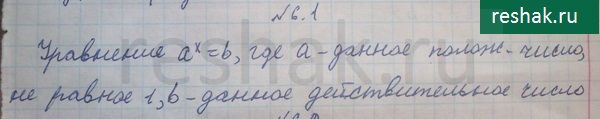 reshak.ru
№6.1
Уравнение aˣ=b, где a-данное полож. число,
не равное 1, b-данное действительное число
reshak.ru